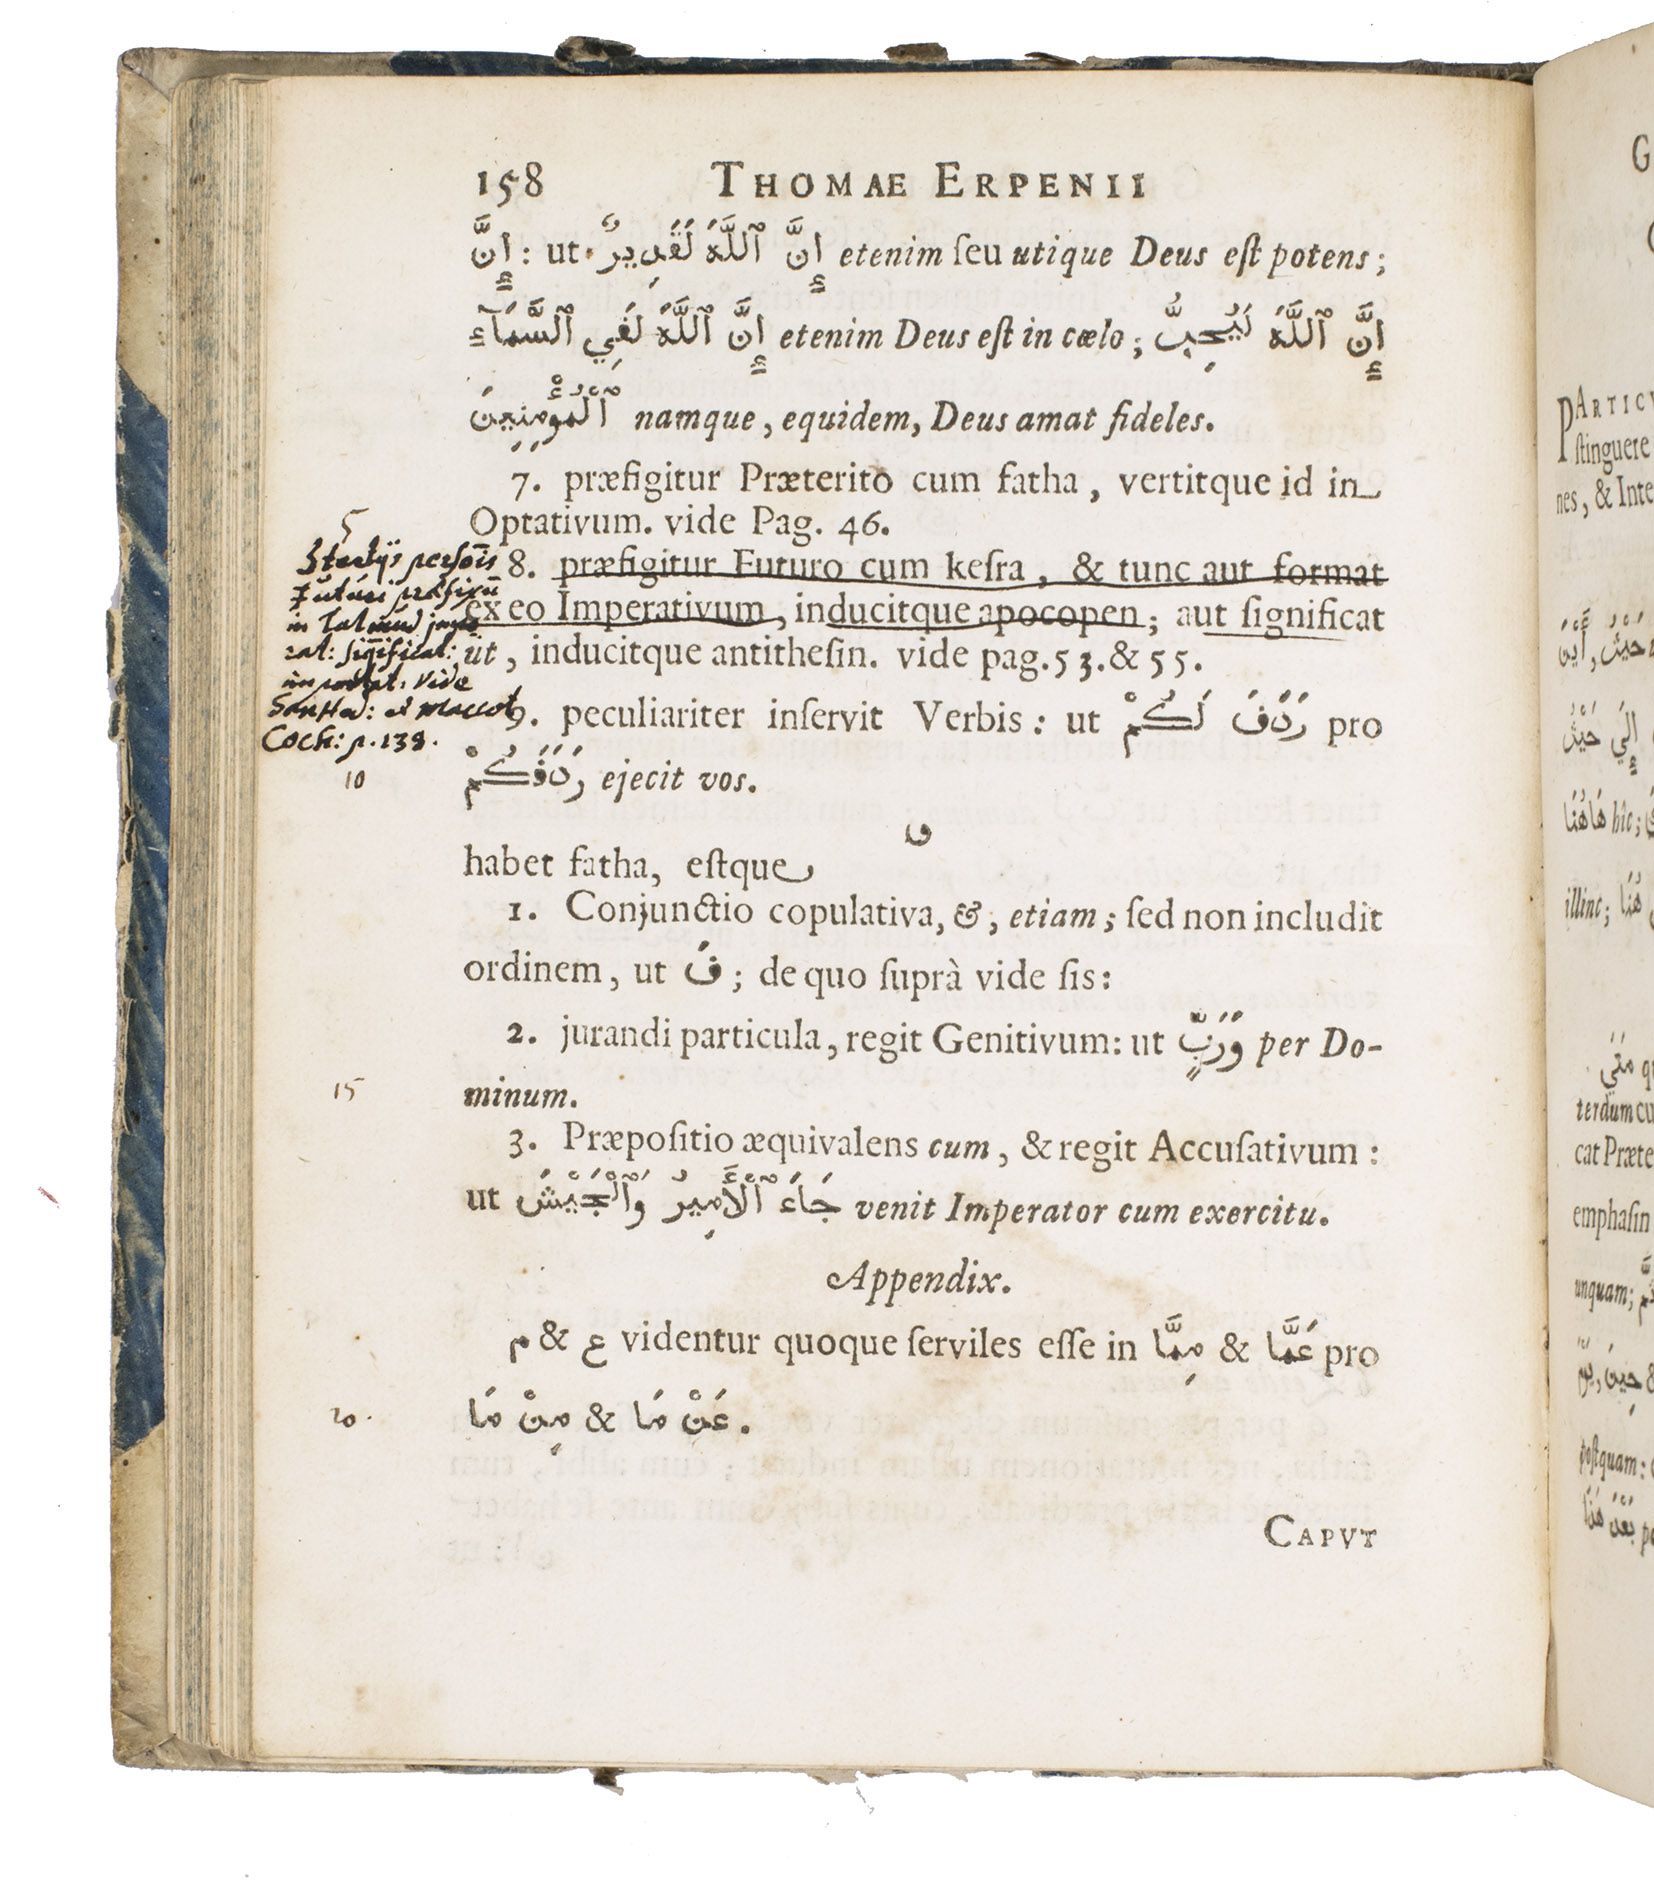 158 THOMAE ERPENII
إِنَّ : ut إِنَّ ٱللَّهَ لَقَدِيرٌ etenim ſeu utique Deus eſt potens;
إِنَّ ٱللَّهَ لَفِي ٱلسَّمَآءِ etenim Deus eſt in cœlo; إِنَّ ٱللَّهَ لَيُحِبُّ
ٱلْمُؤْمِنِينَ namque, equidem, Deus amat fideles.
7. præfigitur Præterito cum fatha, vertitque id in
Optativum. vide Pag. 46.
5
8. præfigitur Futuro cum keſra, & tunc aut format
ex eo Imperativum, inducitque apocopen; aut ſignificat
ut, inducitque antitheſin. vide pag. 53. & 55.
ל tertijs persoīs
Futuri præfixū
in Talmud
significat:
vide
Sanhed: et Maccot
Coch: p. 138.
9. peculiariter inſervit Verbis: ut رَدَفَ لَكُمْ pro
رَدَفَكُمْ ejecit vos.
10
و
habet fatha, eſtque
1. Conjunctio copulativa, &, etiam; ſed non includit
ordinem, ut فَ; de quo ſuprà vide ſis:
2. jurandi particula, regit Genitivum: ut وَرَبٍّ per Do-
15
minum.
3. Præpoſitio æquivalens cum, & regit Accuſativum:
ut جَاءَ ٱلْأَمِيرُ وَٱلْجَيْشَ venit Imperator cum exercitu.
Appendix.
م & ع videntur quoque ſerviles eſſe in مِمَّا & عَمَّا pro
20.
مِنْ مَا & عَنْ مَا.
CAPVT
G
PARTICV
ſtinguere
nes, & Inte
حَيْثُ, أَيْنَ
إِلَي حَيْثُ
هَاهُنَا hîc;
illinc; هُنَا
مَتَي
terdum cu
cat Præte
emphaſin
unquam;
حِينَ,
poſtquam:
بَعْدَ هَذَا